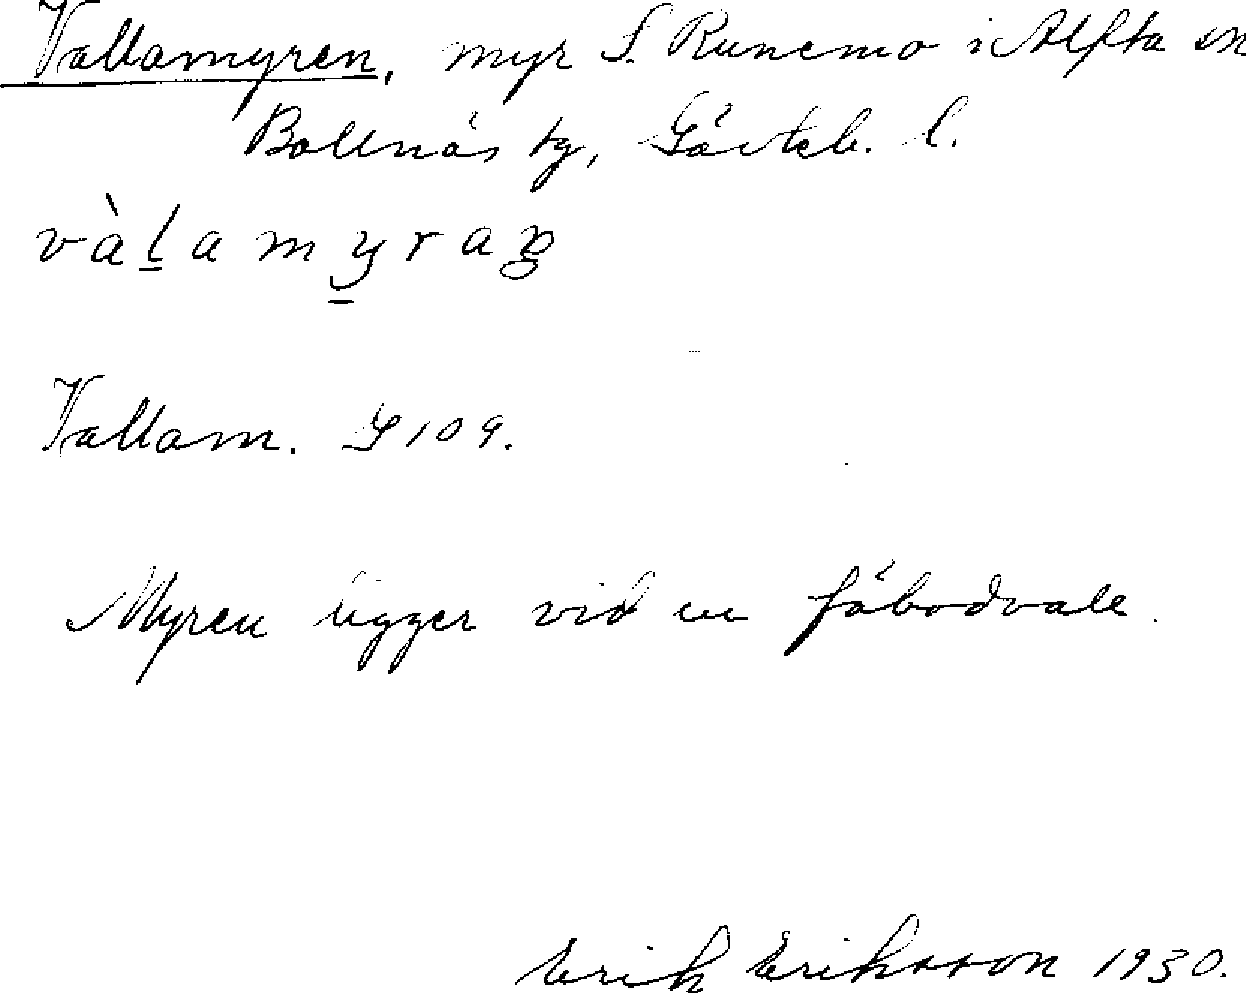 Vallamyren, myr S. Runemo i Alfta sn
Bollnäs tg, Gävleb. l.
vàl̲amy̲raŋ
Vallam. G 109.
Myren ligger vid en fäbodvall.
Erik Eriksson 1930.